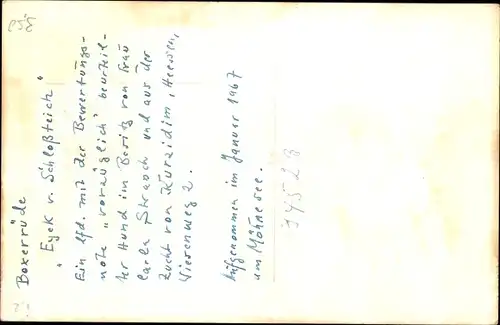 Boxerrüde
"Eyek v. Schloßteich"
Ein lfd. mit der Bewertungs-
note "vorzüglich" beurteil-
ter Hund im Besitz von Frau
Carla Strauch und aus der
Zucht von Kurzidim, Heessen,
Wiesenweg 2.
Aufgenommen im Januar 1967
am Möhnesee.
J4523